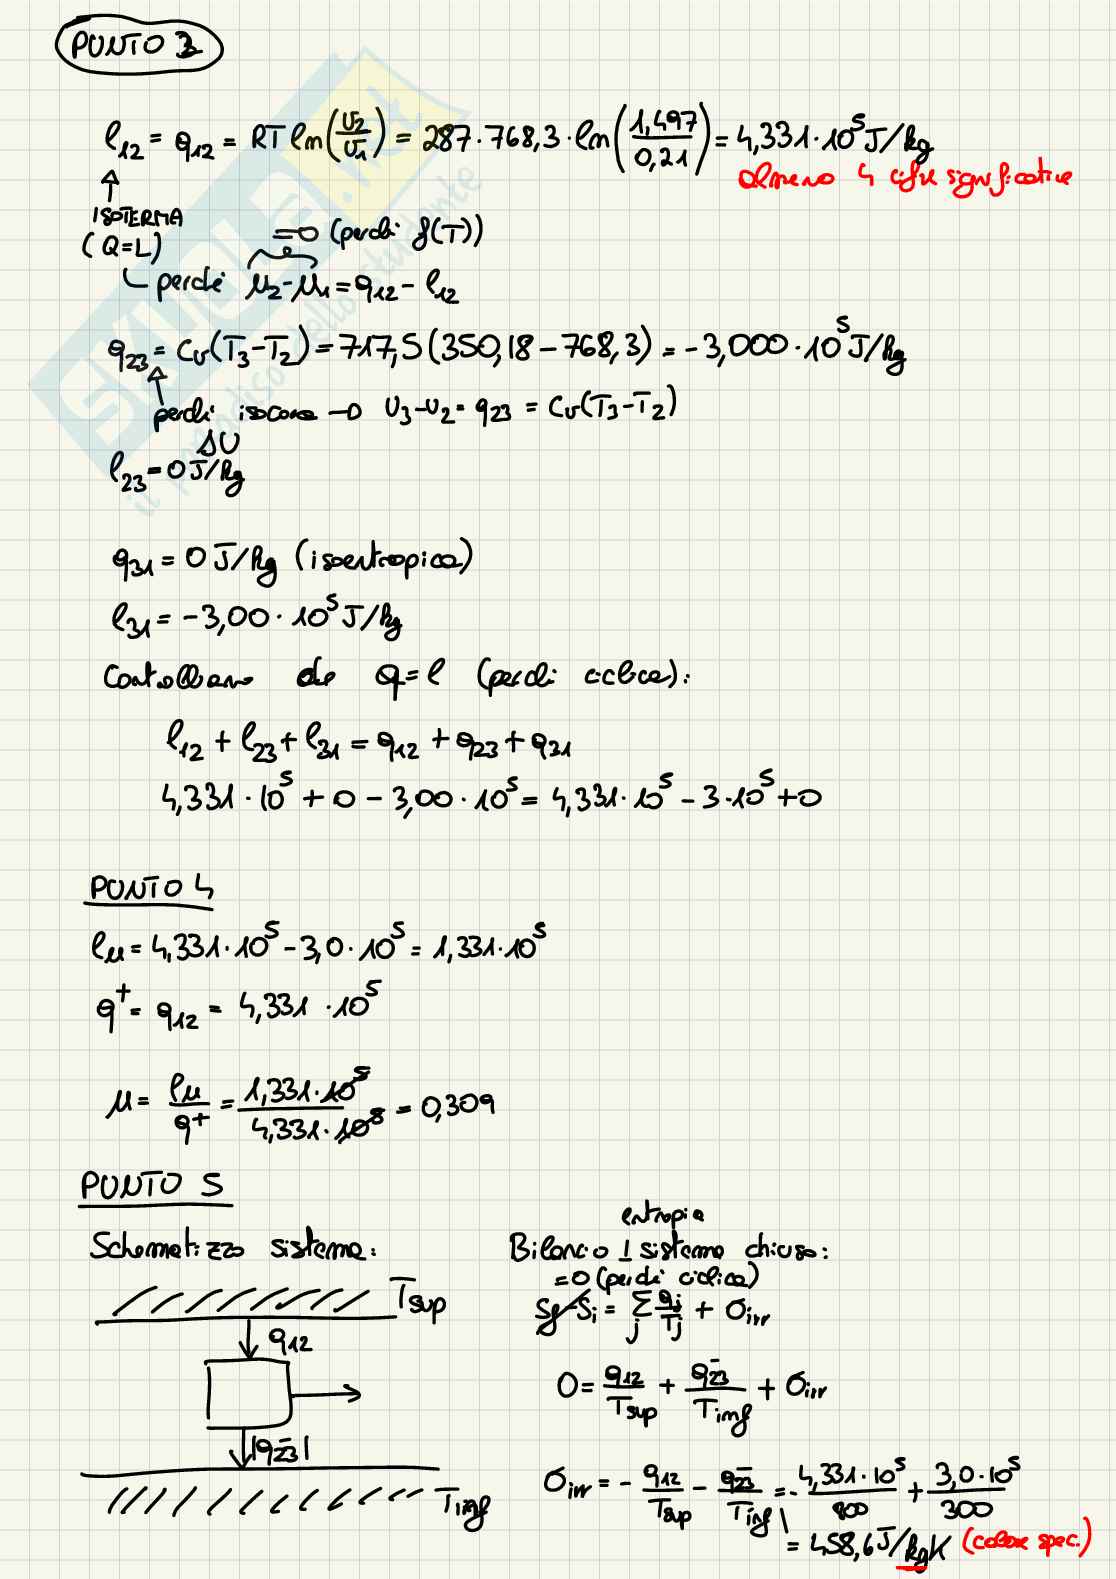 PUNTO 3
l₁₂ = q₁₂ = RT ln(v₂/v₁) = 287·768,3·ln(1,497/0,21) = 4,331·10⁵ J/kg
almeno 4 cifre significative
ISOTERMA
(Q=L)
=0 (perché f(T))
perché u₂-u₁ = q₁₂ - l₁₂
q₂₃ = cv(T₃-T₂) = 717,5(350,18-768,3) = -3,000·10⁵ J/kg
perché isocora → U₃-U₂ = q₂₃ = cv(T₃-T₂)
ΔU
l₂₃ = 0 J/kg
q₃₁ = 0 J/kg (isoentropica)
l₃₁ = -3,00·10⁵ J/kg
Controlliamo che q=l (perché ciclica):
l₁₂ + l₂₃ + l₃₁ = q₁₂ + q₂₃ + q₃₁
4,331·10⁵ + 0 - 3,00·10⁵ = 4,331·10⁵ - 3·10⁵ + 0
PUNTO 4
lu = 4,331·10⁵ - 3,0·10⁵ = 1,331·10⁵
q⁺ = q₁₂ = 4,331·10⁵
η = lu/q⁺ = 1,331·10⁵/4,331·10⁵ = 0,309
PUNTO 5
Schematizzo sistema:
Tsup
q₁₂
|q₂₃⁻|
Tinf
entropia
Bilancio ⊥ sistema chiuso:
=0 (perché ciclica)
Sf-Si = Σj qj/Tj + σirr
0 = q₁₂/Tsup + q₂₃⁻/Tinf + σirr
σirr = - q₁₂/Tsup - q₂₃⁻/Tinf = - 4,331·10⁵/800 + 3,0·10⁵/300
= 458,6 J/kgK (calore spec.)
SKUOLA.net
il paradiso dello studente